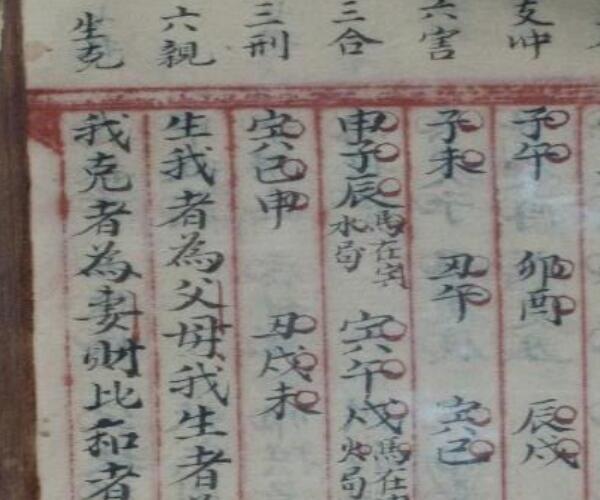 支冲
子午 卯酉 辰戌
六害
子未 丑午 寅巳
三合
申子辰 馬在寅 水局 寅午戌 馬在 火局
三刑
寅巳申 丑戌未
六親
生我者為父母我生者
生克
我克者為妻財比和者